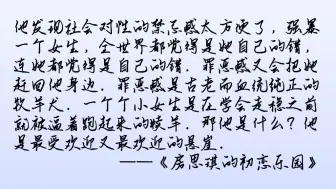 他发现社会对性的禁忌感太方便了，强暴
一个女生，全世界都觉得是她自己的错，
连她都觉得是自己的错。罪恶感又会把她
赶回他身边。罪恶感是古老而血统纯正的
牧羊犬。一个个小女生是在学会走稳之前
就被逼着跑起来的犊羊。那他是什么？他
是最受欢迎又最欢迎的悬崖。
——《房思琪的初恋乐园》